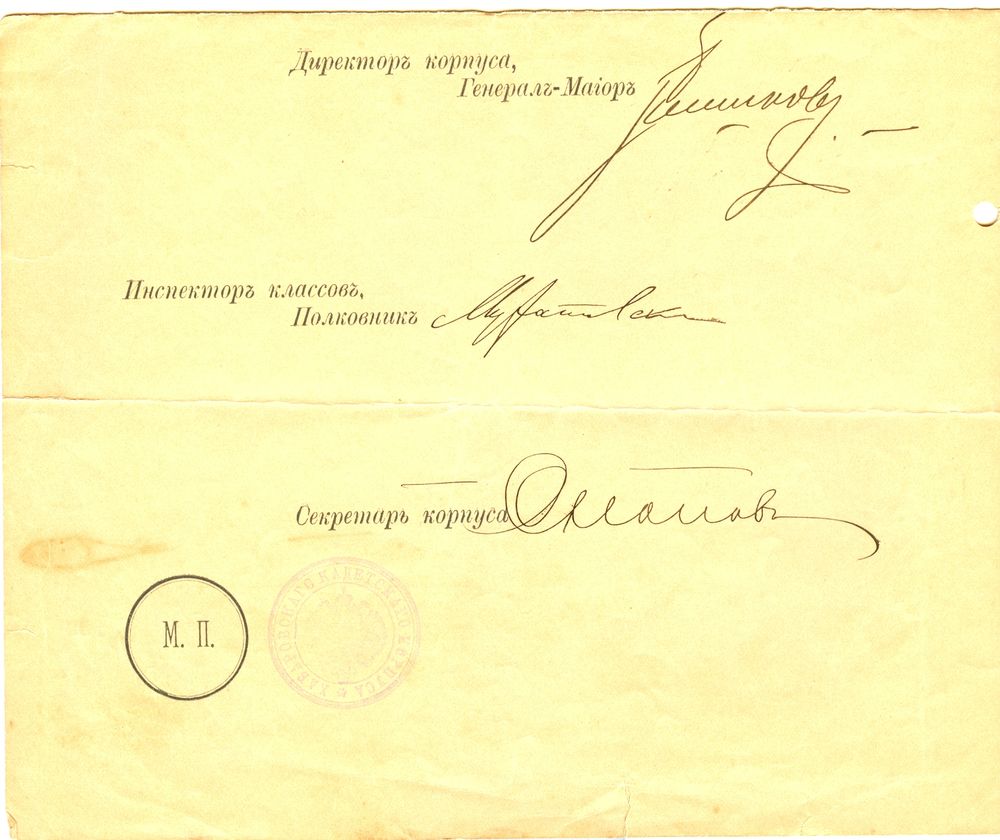 Директоръ корпуса,
Генералъ-Маіоръ
Инспекторъ классовъ,
Полковникъ
Секретарь корпуса
М. П.
ХАБАРОВСКАГО КАДЕТСКАГО КОРПУСА